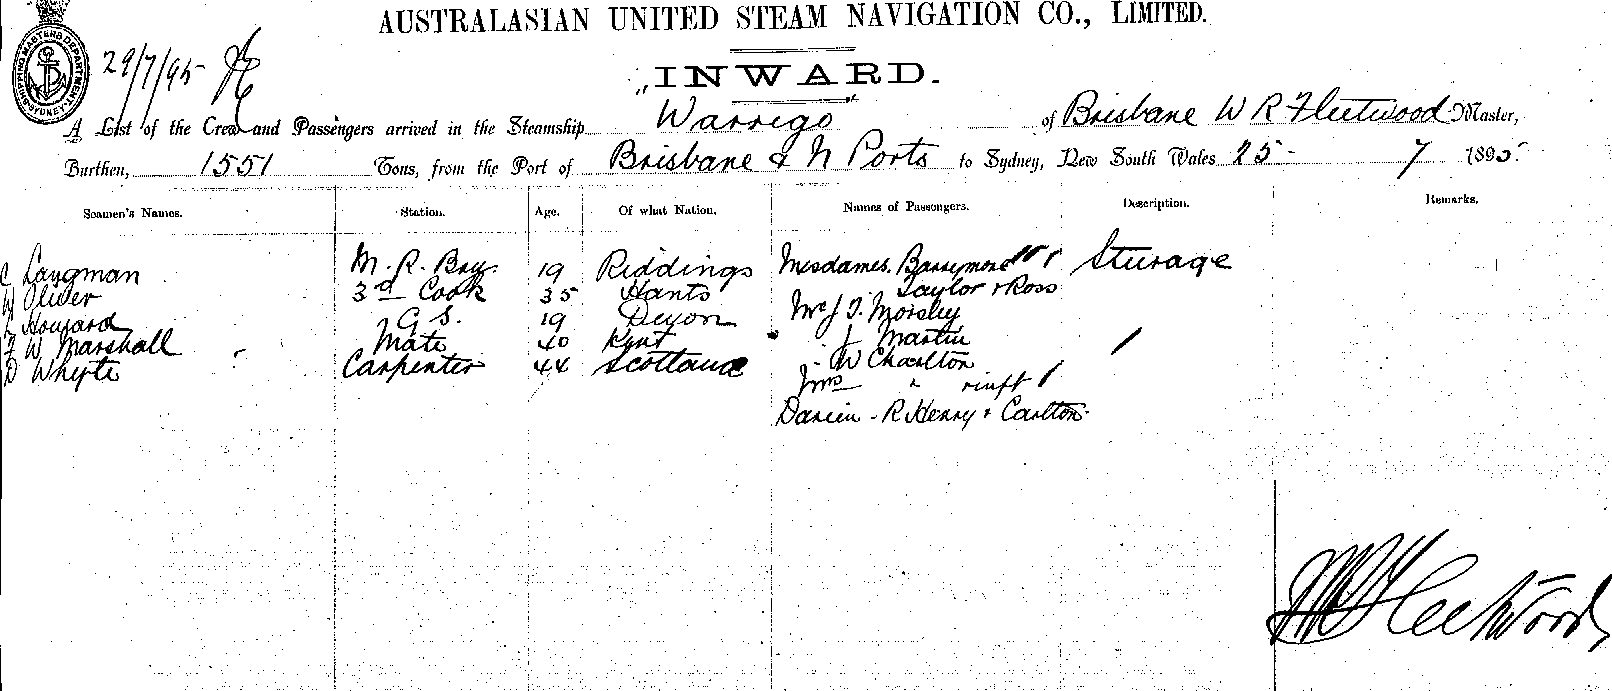 AUSTRALASIAN UNITED STEAM NAVIGATION CO., LIMITED.
SHIPPING MASTERS DEPARTMENT SYDNEY
29/7/95
INWARD.
A List of the Crew and Passengers arrived in the Steamship "Warrego" of Brisbane W R Fleetwood Master,
Burthen, 1551 Tons, from the Port of Brisbane & N Ports to Sydney, New South Wales 25- 7 1895.
Seamen's Names. Station. Age. Of what Nation. Names of Passengers. Description. Remarks.
C Langman M. R. Boy. 19 Riddings Mesdames. Barrymore Sturage
W Oliver 3rd Cook 35 Hants Taylor & Ross
Howard G S. 19 Devon T. Morsley
F W Marshall Mate 40 Kent J Martin
D Whyte Carpenter 44 Scotland W Charlton
Darien - R Henry & Carlton
W R Fleetwood